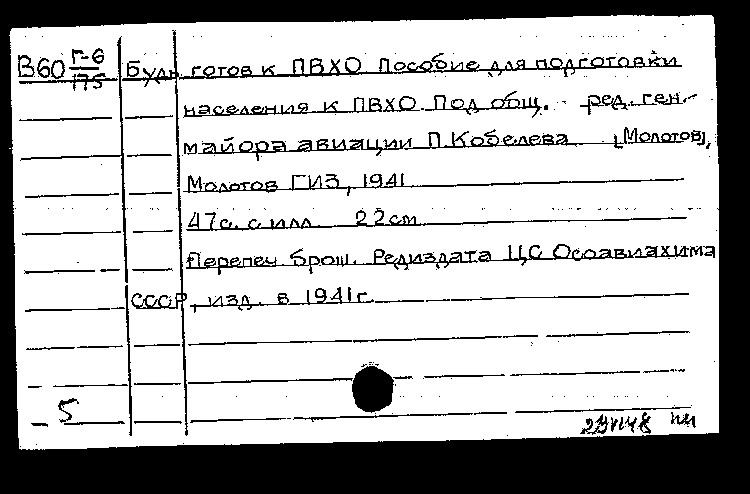 В60 Г-6/175 Будь готов к ПВХО Пособие для подготовки
населения к ПВХО Под общ. ред. ген.-
майора авиации П. Кобелева [Молотов],
Молотов ГИЗ, 1941
47с. с илл. 22см
Перепеч. брош. Редиздата ЦС Осоавиахима
СССР, изд. в 1941г.
5